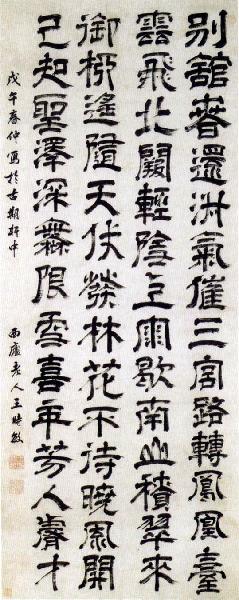 別舘春還淑氣催三宮路轉鳳凰臺
雲飛北闕輕陰散雨歇南山積翠來
御柳遙隨天仗發林花不待曉風開
已知聖澤深無限更喜年芳入睿才
戊午春仲寫於古期軒中
西廬老人王時敏